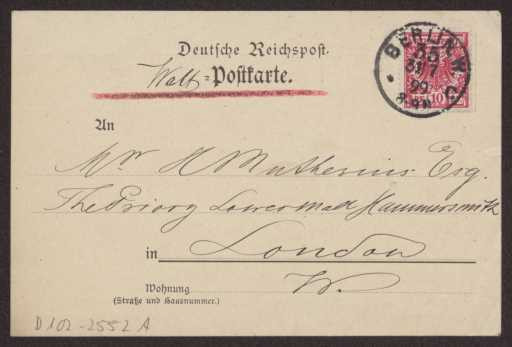 Deutsche Reichspost.
Welt-Postkarte.
BERLIN W
35
31 7
99
8-9N
10
An
Mr H Muthesius Esq.
The Priory Lower Mall Hammersmith
in London
W.
Wohnung
(Straße und Hausnummer.)
D 102-2552 A